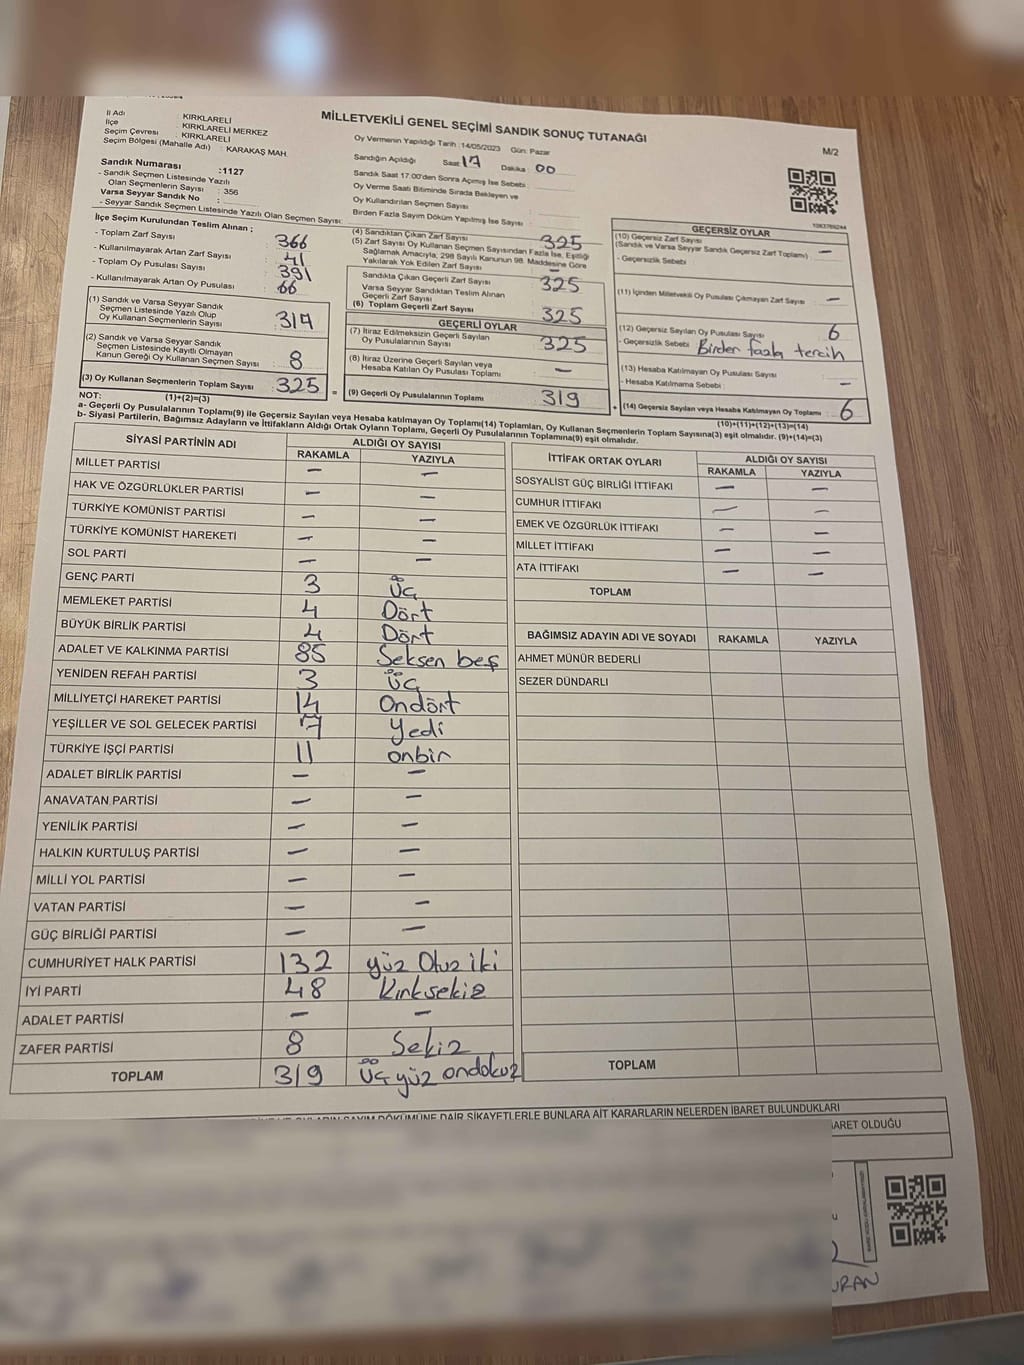 MİLLETVEKİLİ GENEL SEÇİMİ SANDIK SONUÇ TUTANAĞI
M/2
İl Adı : KIRKLARELİ
İlçe : KIRKLARELİ MERKEZ
Seçim Çevresi : KIRKLARELİ
Seçim Bölgesi (Mahalle Adı) : KARAKAŞ MAH.
Sandık Numarası :1127
- Sandık Seçmen Listesinde Yazılı
Olan Seçmenlerin Sayısı : 356
Varsa Seyyar Sandık No :
- Seyyar Sandık Seçmen Listesinde Yazılı Olan Seçmen Sayısı:
Oy Vermenin Yapıldığı Tarih :14/05/2023 Gün: Pazar
Sandığın Açıldığı Saat: 17 Dakika : 00
Sandık Saat 17:00'den Sonra Açımış İse Sebebi :
Oy Verme Saati Bitiminde Sırada Bekleyen ve
Oy Kullandırılan Seçmen Sayısı :
Birden Fazla Sayım Döküm Yapılmış İse Sayısı :
İlçe Seçim Kurulundan Teslim Alınan ;
- Toplam Zarf Sayısı : 366
- Kullanılmayarak Artan Zarf Sayısı : 41
- Toplam Oy Pusulası Sayısı : 391
- Kullanılmayarak Artan Oy Pusulası : 66
(1) Sandık ve Varsa Seyyar Sandık
Seçmen Listesinde Yazılı Olup
Oy Kullanan Seçmenlerin Sayısı : 317
(2) Sandık ve Varsa Seyyar Sandık
Seçmen Listesinde Kayıtlı Olmayan
Kanun Gereği Oy Kullanan Seçmen Sayısı : 8
(3) Oy Kullanan Seçmenlerin Toplam Sayısı : 325 =
(1)+(2)=(3)
(4) Sandıktan Çıkan Zarf Sayısı : 325
(5) Zarf Sayısı Oy Kullanan Seçmen Sayısından Fazla İse, Eşitliği
Sağlamak Amacıyla, 298 Sayılı Kanunun 98. Maddesine Göre
Yakılarak Yok Edilen Zarf Sayısı : –
Sandıkta Çıkan Geçerli Zarf Sayısı : 325
Varsa Seyyar Sandıktan Teslim Alınan
Geçerli Zarf Sayısı :
(6) Toplam Geçerli Zarf Sayısı : 325
GEÇERLİ OYLAR
(7) İtiraz Edilmeksizin Geçerli Sayılan
Oy Pusulalarının Sayısı : 325
(8) İtiraz Üzerine Geçerli Sayılan veya
Hesaba Katılan Oy Pusulası Toplamı : –
(9) Geçerli Oy Pusulalarının Toplamı : 319 +
GEÇERSİZ OYLAR
(10) Geçersiz Zarf Sayısı
(Sandık ve Varsa Seyyar Sandık Geçersiz Zarf Toplamı) : –
- Geçersizlik Sebebi :
(11) İçinden Milletvekili Oy Pusulası Çıkmayan Zarf Sayısı : –
(12) Geçersiz Sayılan Oy Pusulası Sayısı : 6
- Geçersizlik Sebebi : Birden fazla tercih
(13) Hesaba Katılmayan Oy Pusulası Sayısı :
- Hesaba Katılmama Sebebi : –
(14) Geçersiz Sayılan veya Hesaba Katılmayan Oy Toplamı : 6
(10)+(11)+(12)+(13)=(14)
NOT:
a- Geçerli Oy Pusulalarının Toplamı(9) ile Geçersiz Sayılan veya Hesaba katılmayan Oy Toplamı(14) Toplamları, Oy Kullanan Seçmenlerin Toplam Sayısına(3) eşit olmalıdır. (9)+(14)=(3)
b- Siyasi Partilerin, Bağımsız Adayların ve İttifakların Aldığı Ortak Oyların Toplamı, Geçerli Oy Pusulalarının Toplamına(9) eşit olmalıdır.
SİYASİ PARTİNİN ADI ALDIĞI OY SAYISI
RAKAMLA YAZIYLA
MİLLET PARTİSİ – –
HAK VE ÖZGÜRLÜKLER PARTİSİ – –
TÜRKİYE KOMÜNİST PARTİSİ – –
TÜRKİYE KOMÜNİST HAREKETİ – –
SOL PARTİ – –
GENÇ PARTİ 3 Üç
MEMLEKET PARTİSİ 4 Dört
BÜYÜK BİRLİK PARTİSİ 4 Dört
ADALET VE KALKINMA PARTİSİ 85 Seksen beş
YENİDEN REFAH PARTİSİ 3 Üç
MİLLİYETÇİ HAREKET PARTİSİ 14 Ondört
YEŞİLLER VE SOL GELECEK PARTİSİ 7 Yedi
TÜRKİYE İŞÇİ PARTİSİ 11 onbir
ADALET BİRLİK PARTİSİ – –
ANAVATAN PARTİSİ – –
YENİLİK PARTİSİ – –
HALKIN KURTULUŞ PARTİSİ – –
MİLLİ YOL PARTİSİ – –
VATAN PARTİSİ – –
GÜÇ BİRLİĞİ PARTİSİ – –
CUMHURİYET HALK PARTİSİ 132 yüz Otuz iki
İYİ PARTİ 48 Kırksekiz
ADALET PARTİSİ – –
ZAFER PARTİSİ 8 Sekiz
TOPLAM 319 Üç yüz ondokuz
İTTİFAK ORTAK OYLARI ALDIĞI OY SAYISI
RAKAMLA YAZIYLA
SOSYALİST GÜÇ BİRLİĞİ İTTİFAKI – –
CUMHUR İTTİFAKI – –
EMEK VE ÖZGÜRLÜK İTTİFAKI – –
MİLLET İTTİFAKI – –
ATA İTTİFAKI – –
TOPLAM
BAĞIMSIZ ADAYIN ADI VE SOYADI RAKAMLA YAZIYLA
AHMET MÜNÜR BEDERLİ
SEZER DÜNDARLI
TOPLAM
DÖKÜMÜNE DAİR ŞİKAYETLERLE BUNLARA AİT KARARLARIN NELERDEN İBARET BULUNDUKLARI
OLDUĞU